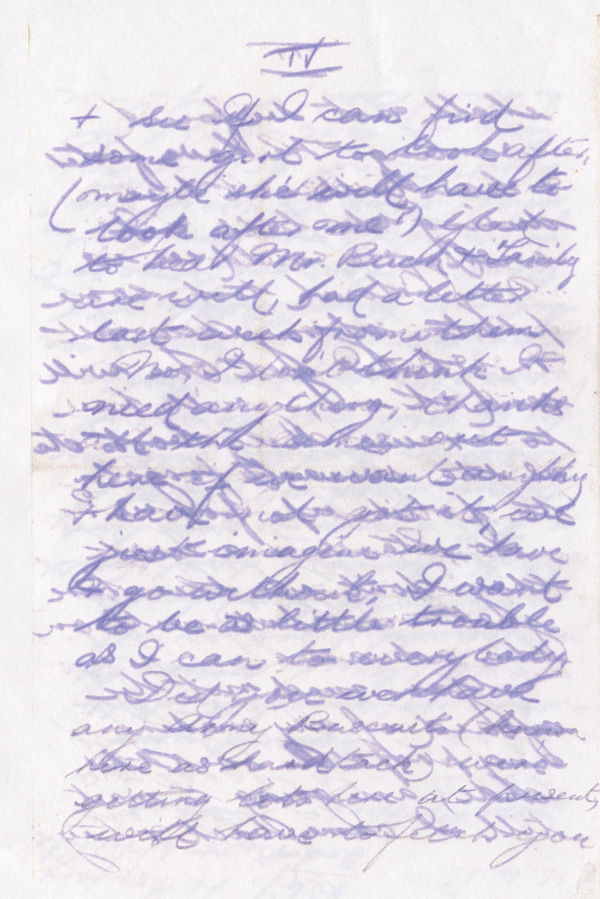 IV
+ see if I can find
some girl to look after,
(maybe she will have to
look after me") glad
to hear Mr. Buck + family
are well, had a letter
last week from them
No, I don't think I
need anything, thanks
here if we want anything
+ have not got it, we
just imagine we have
+ go without, I want
to be as little trouble
as I can to everybody
any Army Biscuits (known
here as hard tack) were
getting lots now at present,
will have to fetch you